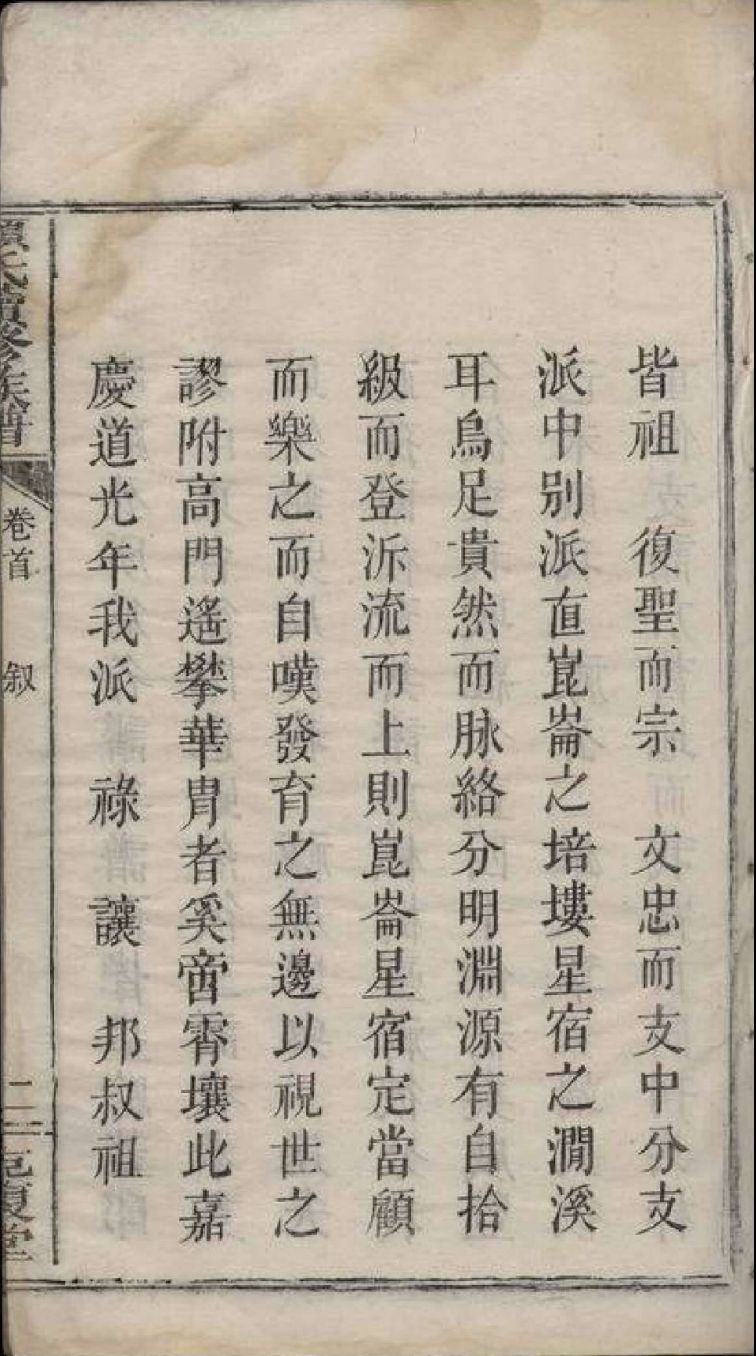 皆祖　復聖而宗　文忠而支中分支
派中別派直崑崙之培塿星宿之澗溪
耳烏足貴然而脉絡分明淵源有自拾
級而登泝流而上則崑崙星宿定當顧
而樂之而自嘆發育之無邊以視世之
謬附高門遙攀華胄者奚啻霄壤此嘉
慶道光年我派　祿　讓　邦叔祖
氏續修族譜
卷首
叙
二
復堂